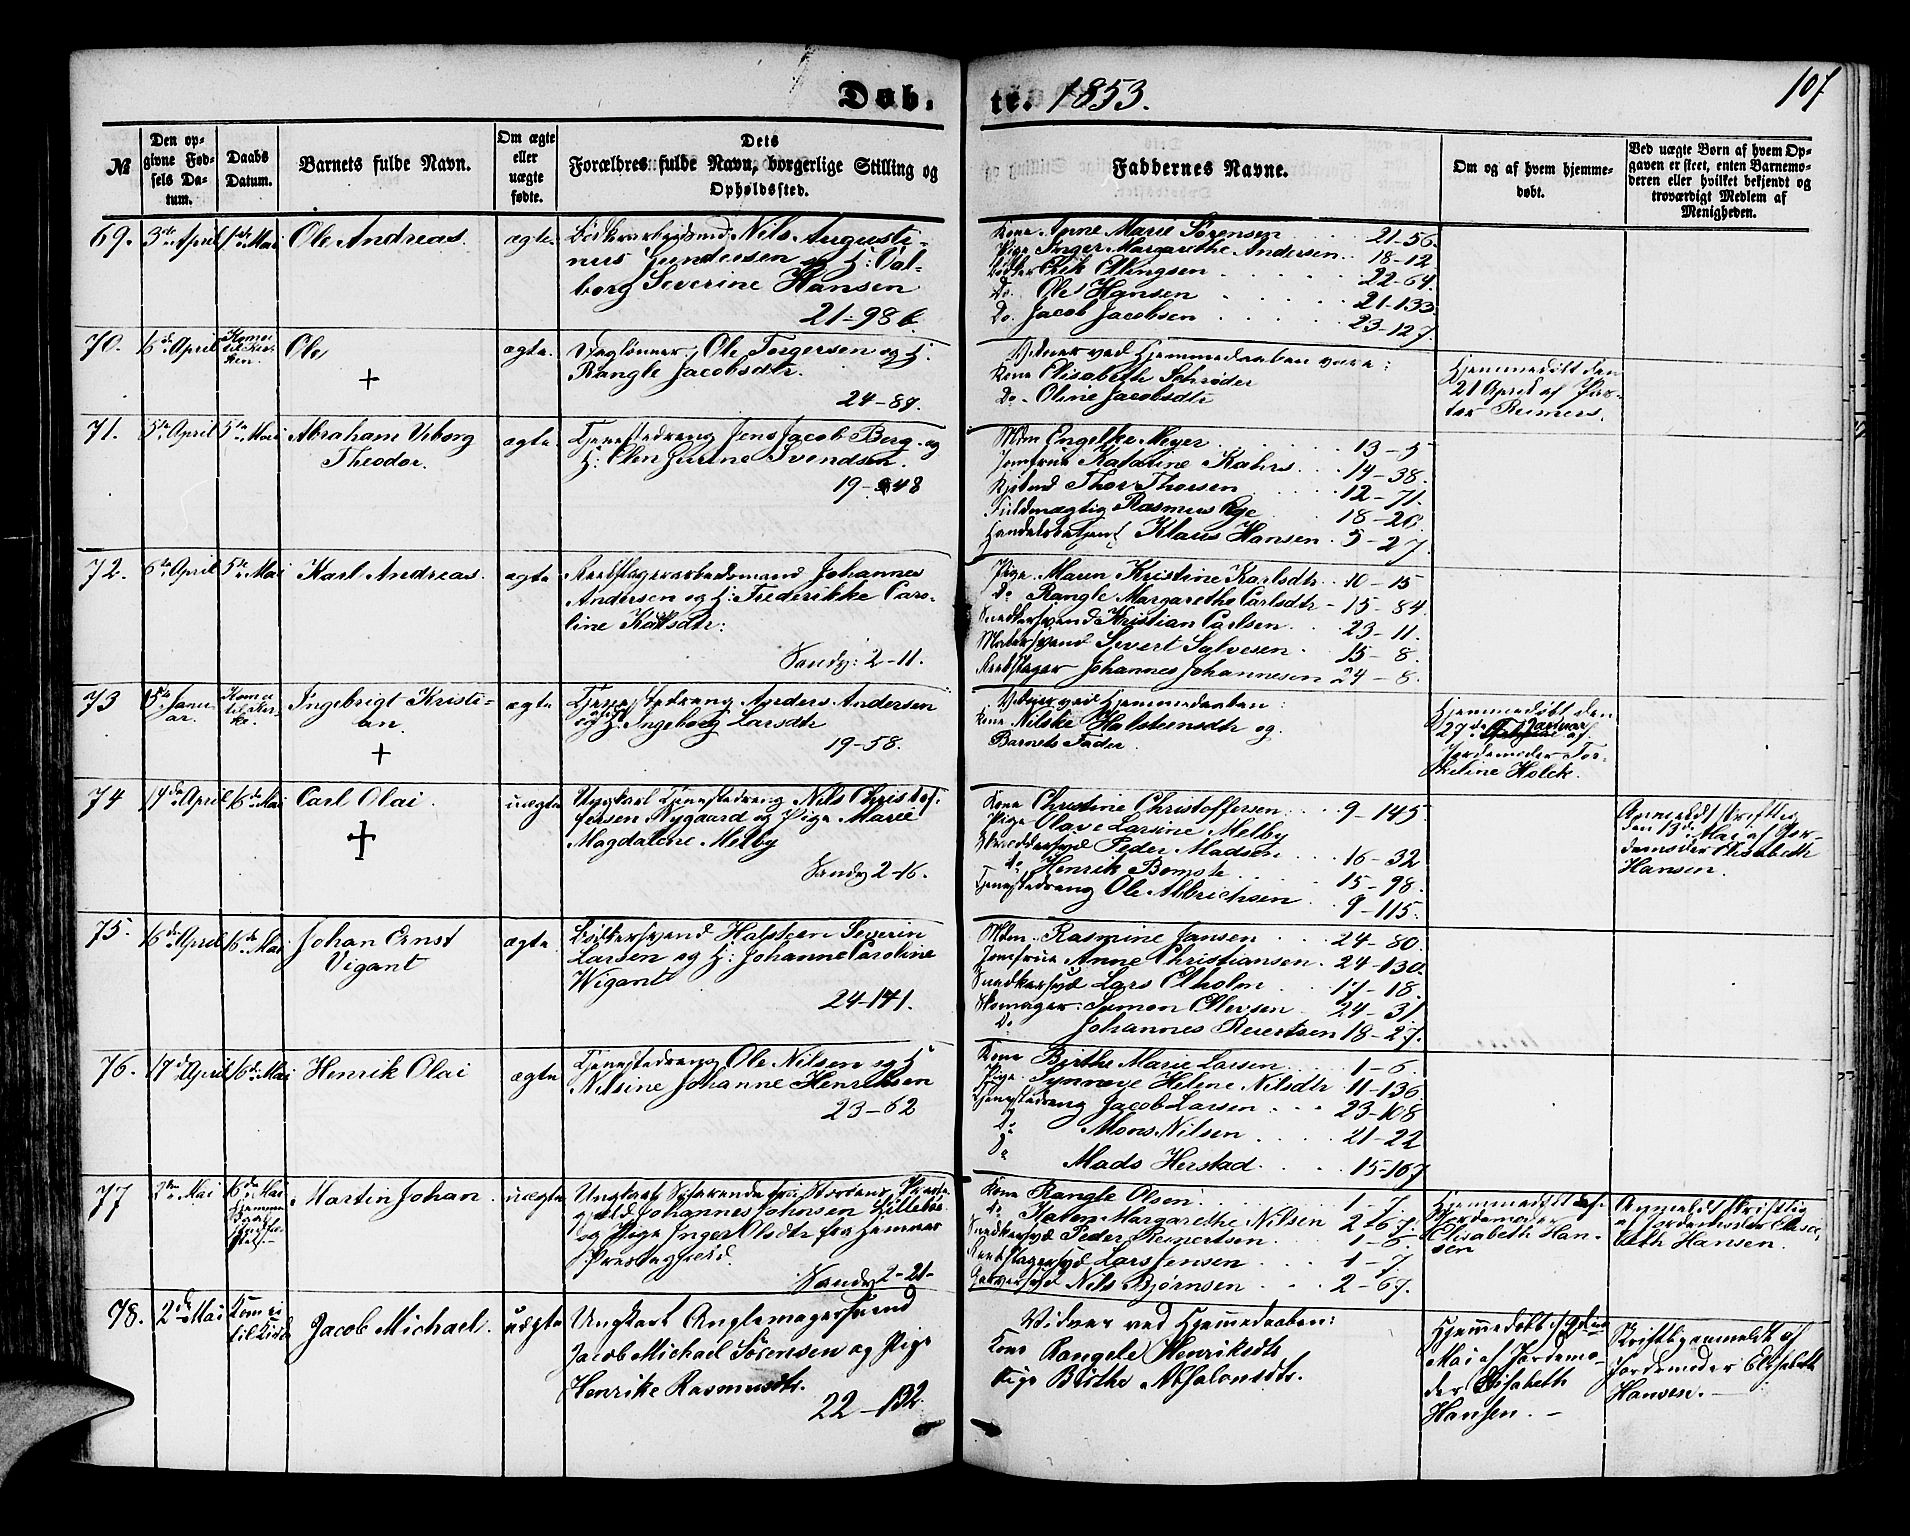 Døb,
te. 1853.
107
№
Den op-
givne Fød-
sels Da-
tum.
Daabs
Datum.
Barnets fulde Navn.
Om ægte
eller
uægte
fødte.
Dets
Forældres fulde Navn, borgerlige Stilling og
Opholdssted.
Faddernes Navne.
Om og af hvem hjemme-
døbt.
Ved uægte Børn af hvem Op-
gaven er skeet, enten Barnemo-
deren eller hvilket bekjendt og
troværdigt Medlem af
Menigheden.
69. 3die April 1ste Mai Ole Andreas. ægte. Nils Augusti-
nus Gundersen og H: Val-
borg Severine Hansen
21-98 b.
Kone Anne Marie Sørensen 21-56.
Pige Inger Margarethe Andersen 18-12
Bødker Erik Ellingsen 22-64.
Do. Ole Hansen 21-133
Do. Jacob Jacobsen 23-127.
70. 16de April Kom ei
til Kir-
ken. Ole ægte. Daglønner, Ole Torgersen og H:
+ Rangle Jacobsdtr.
24-89.
Vidner ved Hjemmedaaben vare:
Kone Elisabeth Schrøder
Do. Oline Jacobsdtr
Hjemmedøbt den
21 April af Pas-
tor Reimers.
71. 5te April 5te Mai Abraham Viborg
Theodor. ægte. Tjenestedreng Jens Jacob Berg og
H: Elen Jurine Svendsen.
19-48
Mdm Engelke Meyer 13-5
Jomfrue Katarine Kahrs 14-38.
Thor Thorsen 12-71.
Fuldmægtig Rasmus Eye 18-20.
Handelsbetjent Klaus Hansen. 5-27.
72. 6te April 5te Mai Karl Andreas. ægte Rebslagerarbeidsmand Johannes
Andersen og H: Frederikke Caro-
line Karlsdtr:
Sandv: 2-11.
Pige Maren Kristine Karlsdtr 10-15
do Rangle Margarethe Carlsdtr 15-84.
Snedkersvend Kristian Carlsen 23-11.
Malersvend Sivert Salvesen 15-8.
Rebslager Johannes Johannesen 24-8.
73 15de Janu-
ar. Kom ei
til Kir-
ke. Ingebrigt Kristi-
an. ægte Tjenestedreng Anders Andersen
+ og H: Ingeborg Larsdtr
19-58.
Vidner ved Hjemmedaaben:
Kone Nilske Halstensdtr og
Barnets Fader.
Hjemmedøbt den
27de Januar af
Jordemoder Tor-
keline Holck.
74 14de April 16de Mai Carl Olai. uægte Ungkarl Tjenestedreng Nils Christof-
+ fersen Nygaard og Pige Marie
Magdalene Melby
Sandv 2-16.
Kone Christine Christoffersen 9-145
Pige Olave Larsine Melby
Skræddersvd Peder Madsen 16-32
do Henrik Bomste 15-98.
Tjenestedreng Ole Albrichsen 9-115.
Anmeldt skriftlig
den 13de Mai af Jor-
demoder Elisabeth
Hansen.
75. 16de April 16de Mai Johan Ernst
Vigant ægte. Bødkersvend Halsteen Severin
Larsen og H: Johanne Caroline
Wigant
24-141.
Mdm. Rasmine Jansen 24-80.
Jomfrue Anne Christiansen 24-130.
Snedkersvd Lars Elholm 17-18.
Skomager Symon Ellevsen 24-31.
Do Johannes Reiertsen 18-27.
76. 17de April 16de Mai Henrik Olai ægte Tjenestedreng Ole Nilsen og H
Nilsine Johanne Henriksen
23-62
Kone Birthe Marie Larsen 1-6.
Pige Synnøve Helene Nilsdtr 11-136
Tjenestedreng Jacob Larsen 23-108
do Mons Nilsen 21-22
do Mads Herstad. 15-107
77 2den Mai 16de Mai
Hjemme
Daab
Martin Johan. uægte Ungkarl Søfarende fra Stordens Præste-
gjeld Johannes Johnsen Lillebø
og Pige Inger Olsdtr fra Hemnes
Præstegjeld.
Sandv 2-21-
Kone Rangle Olsen 1-7.
do Karen Margarethe Nilsen 2-67.
Snedkersvd Peder Reinertsen 1-6.
Rebslagersvd Lars Jensen 1-7
Garversvd Nils Bjørnsen 2-67.
Hjemmedøbt af
Jordemoder
Elisabeth Han-
sen
Anmeldt skriftlig
af Jordemoder Elisa-
beth Hansen.
78. 2den Mai Kom ei
til Kirke Jacob Michael. uægte Ungkarl Anglemagersvend
Jacob Michael Sørensen og Pige
Henrike Rasmusdtr.
22-132.
Vidner ved Hjemmedaaben:
Kone Rangele Henriksdtr
Pige Birthe Absalonsdtr.
Hjemmedøbt
Mai af Jordemo-
der Elisabeth
Hansen. -
Skriftl. anmeldt af
Jordemoder Elisabeth
Hansen. -